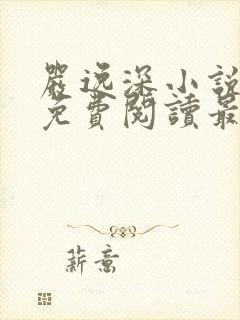 嚴逸深小說
免費閱讀最
薪意